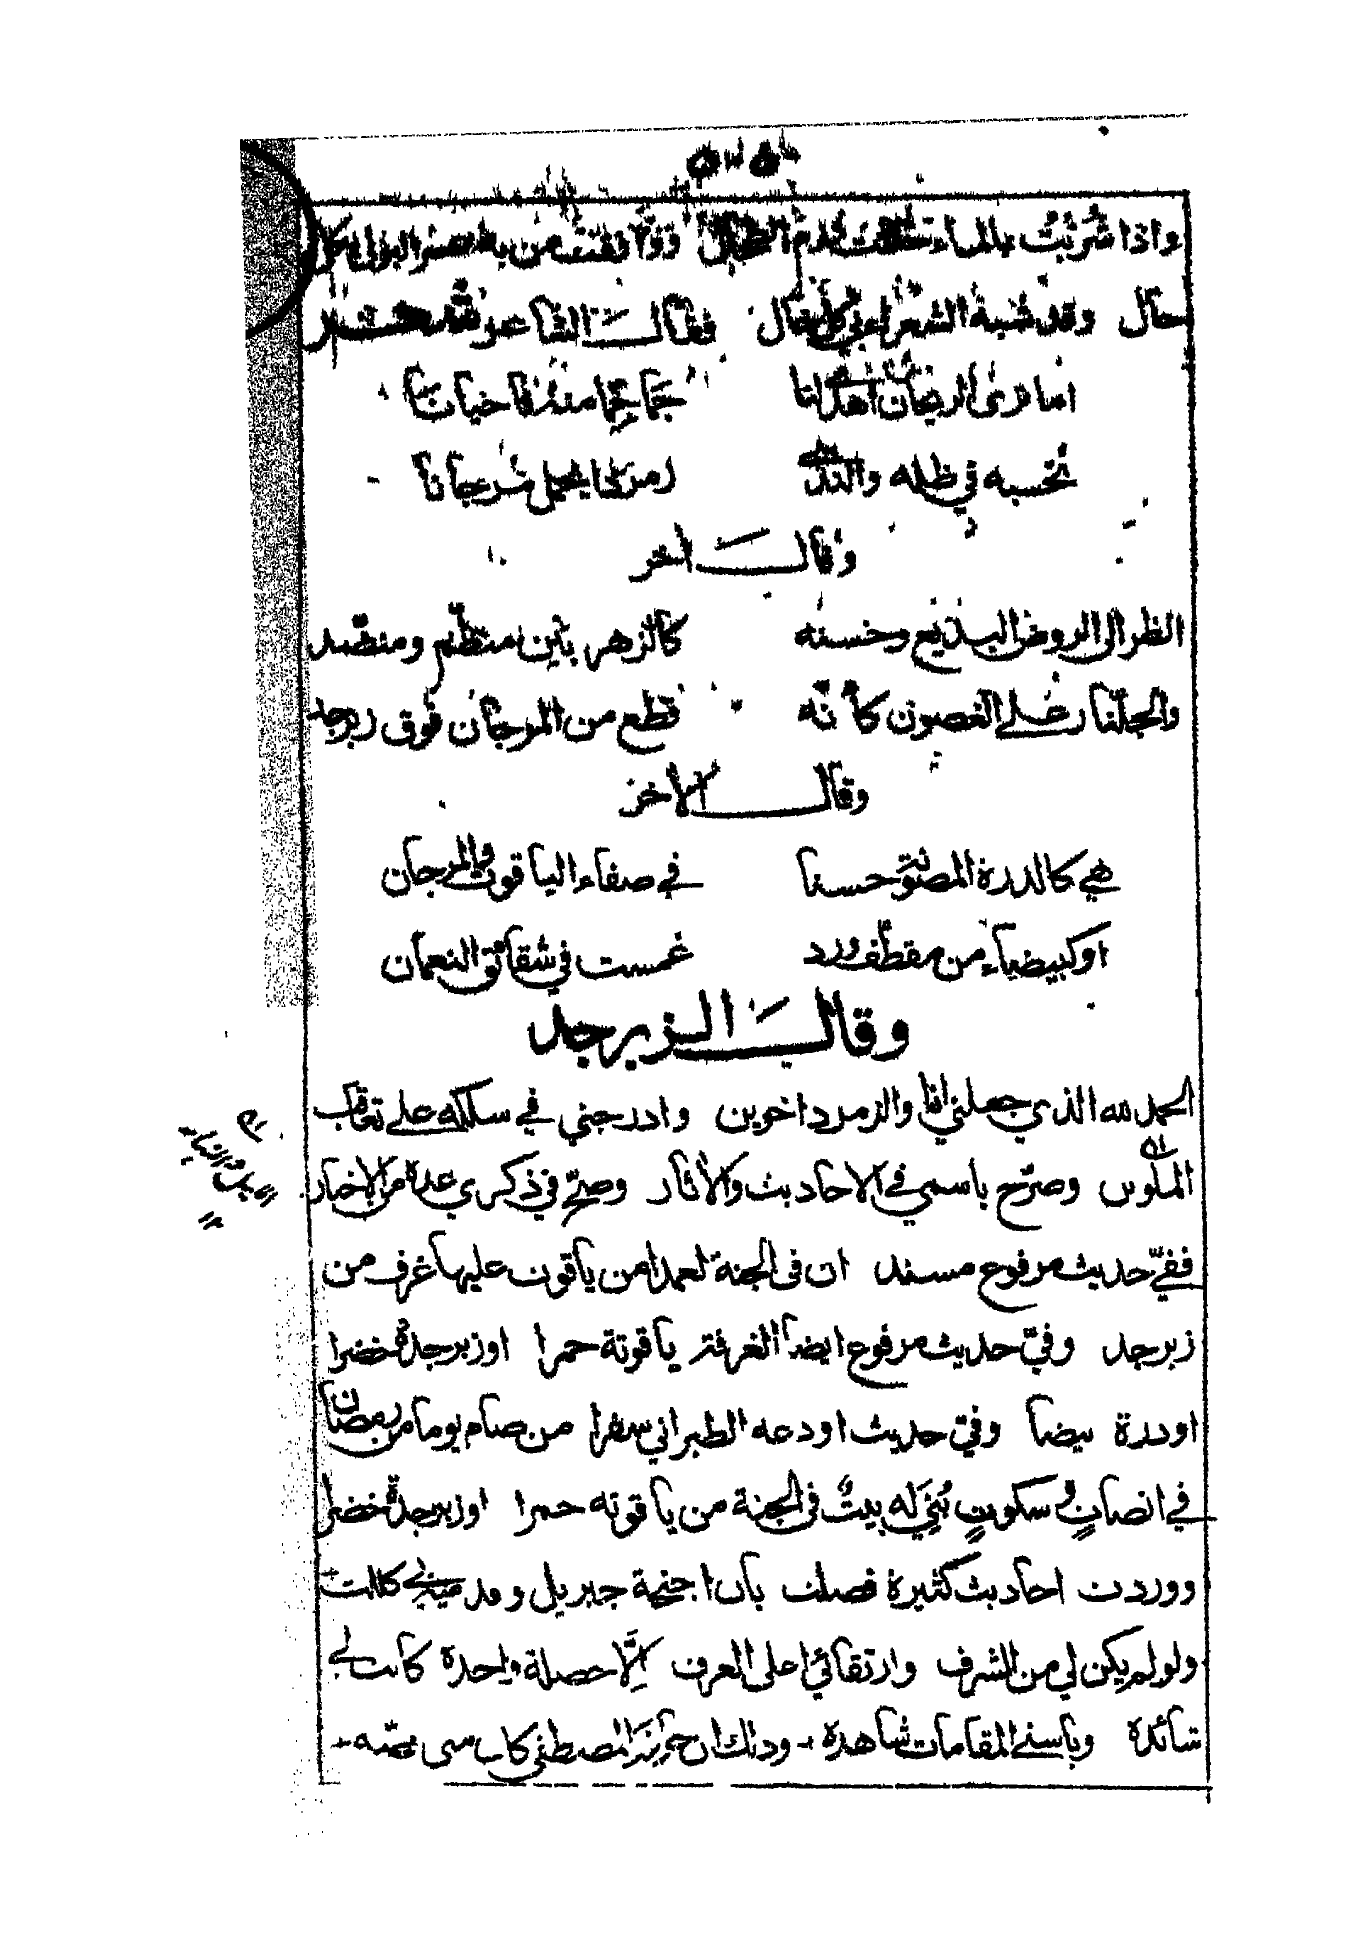 واذا شربت بالماء حللت ورم الطحال ووافقت من به عسر البول على كل
حال وقد شبه الشعراء بي كل خال فقال الشاعر
اما ترى الريحان اهدى لنا حماحما منه فاحيانا
تحسبه في ظله والندى زمردا يحمل مرجانا
وقال اخر
انظر الى الروض البديع وحسنه كالزهر بين منظم ومنضد
والجلنار على الغصون كأنه قطع من المرجان فوق زبرجد
وقال الاخر
هي كالدرة المصونة حسنا في صفاء الياقوت والمرجان
او كبيضاء من مقطف ورد غمست في شقائق النعمان
وقال الزبرجد
الحمد لله الذي جعلني انا والزمرد اخوين وادرجني في سلكه على تعاقب
الملوين وصرح باسمي في الاحاديث والآثار وصح في ذكري عدة من الاخبار
ففي حديث مرفوع مسند ان في الجنة لعمدا من ياقوت عليها غرف من
زبرجد وفي حديث مرفوع ايضا الغرفة ياقوتة حمرا او زبرجدة خضرا
او درة بيضا وفي حديث اودعه الطبراني سفرا من صام يوما من رمضان
في انصات وسكوت بني له بيت في الجنة من ياقوته حمرا او زبرجدة خضرا
ووردت احاديث كثيرة فصلت بان اجنحة جبريل وقدميه كانت
ولو لم يكن لي من الشرف وارتقائي اعلى الغرف الا خصلة واحدة كانت لي
شائدة وباسنى المقامات شاهدة وذلك ان المصطفى كان فصه